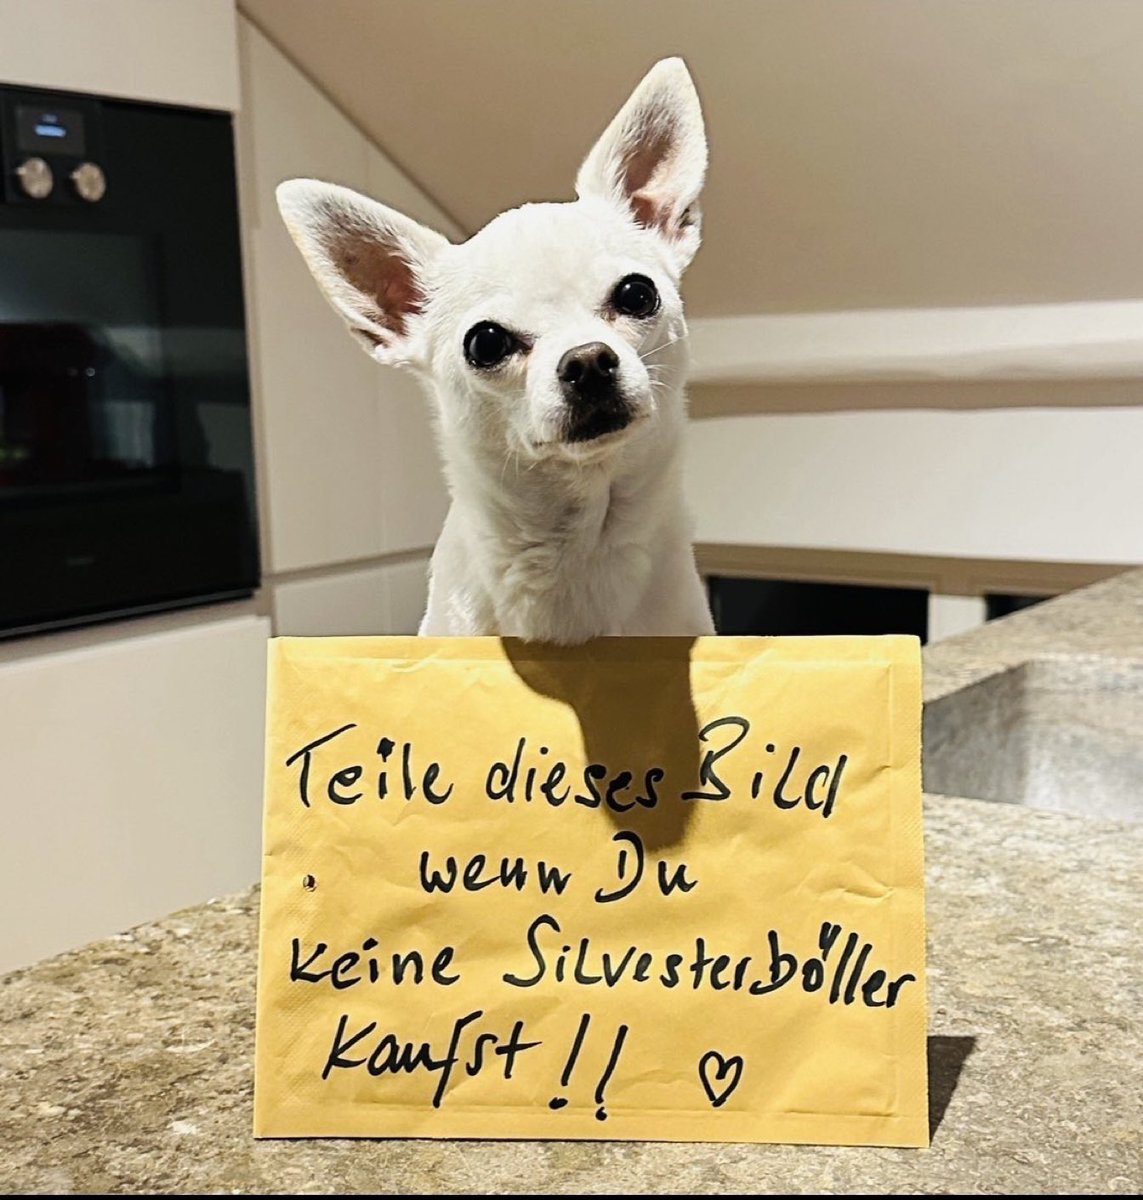 Teile dieses Bild
wenn Du
keine Silvesterböller
kaufst!! ♡